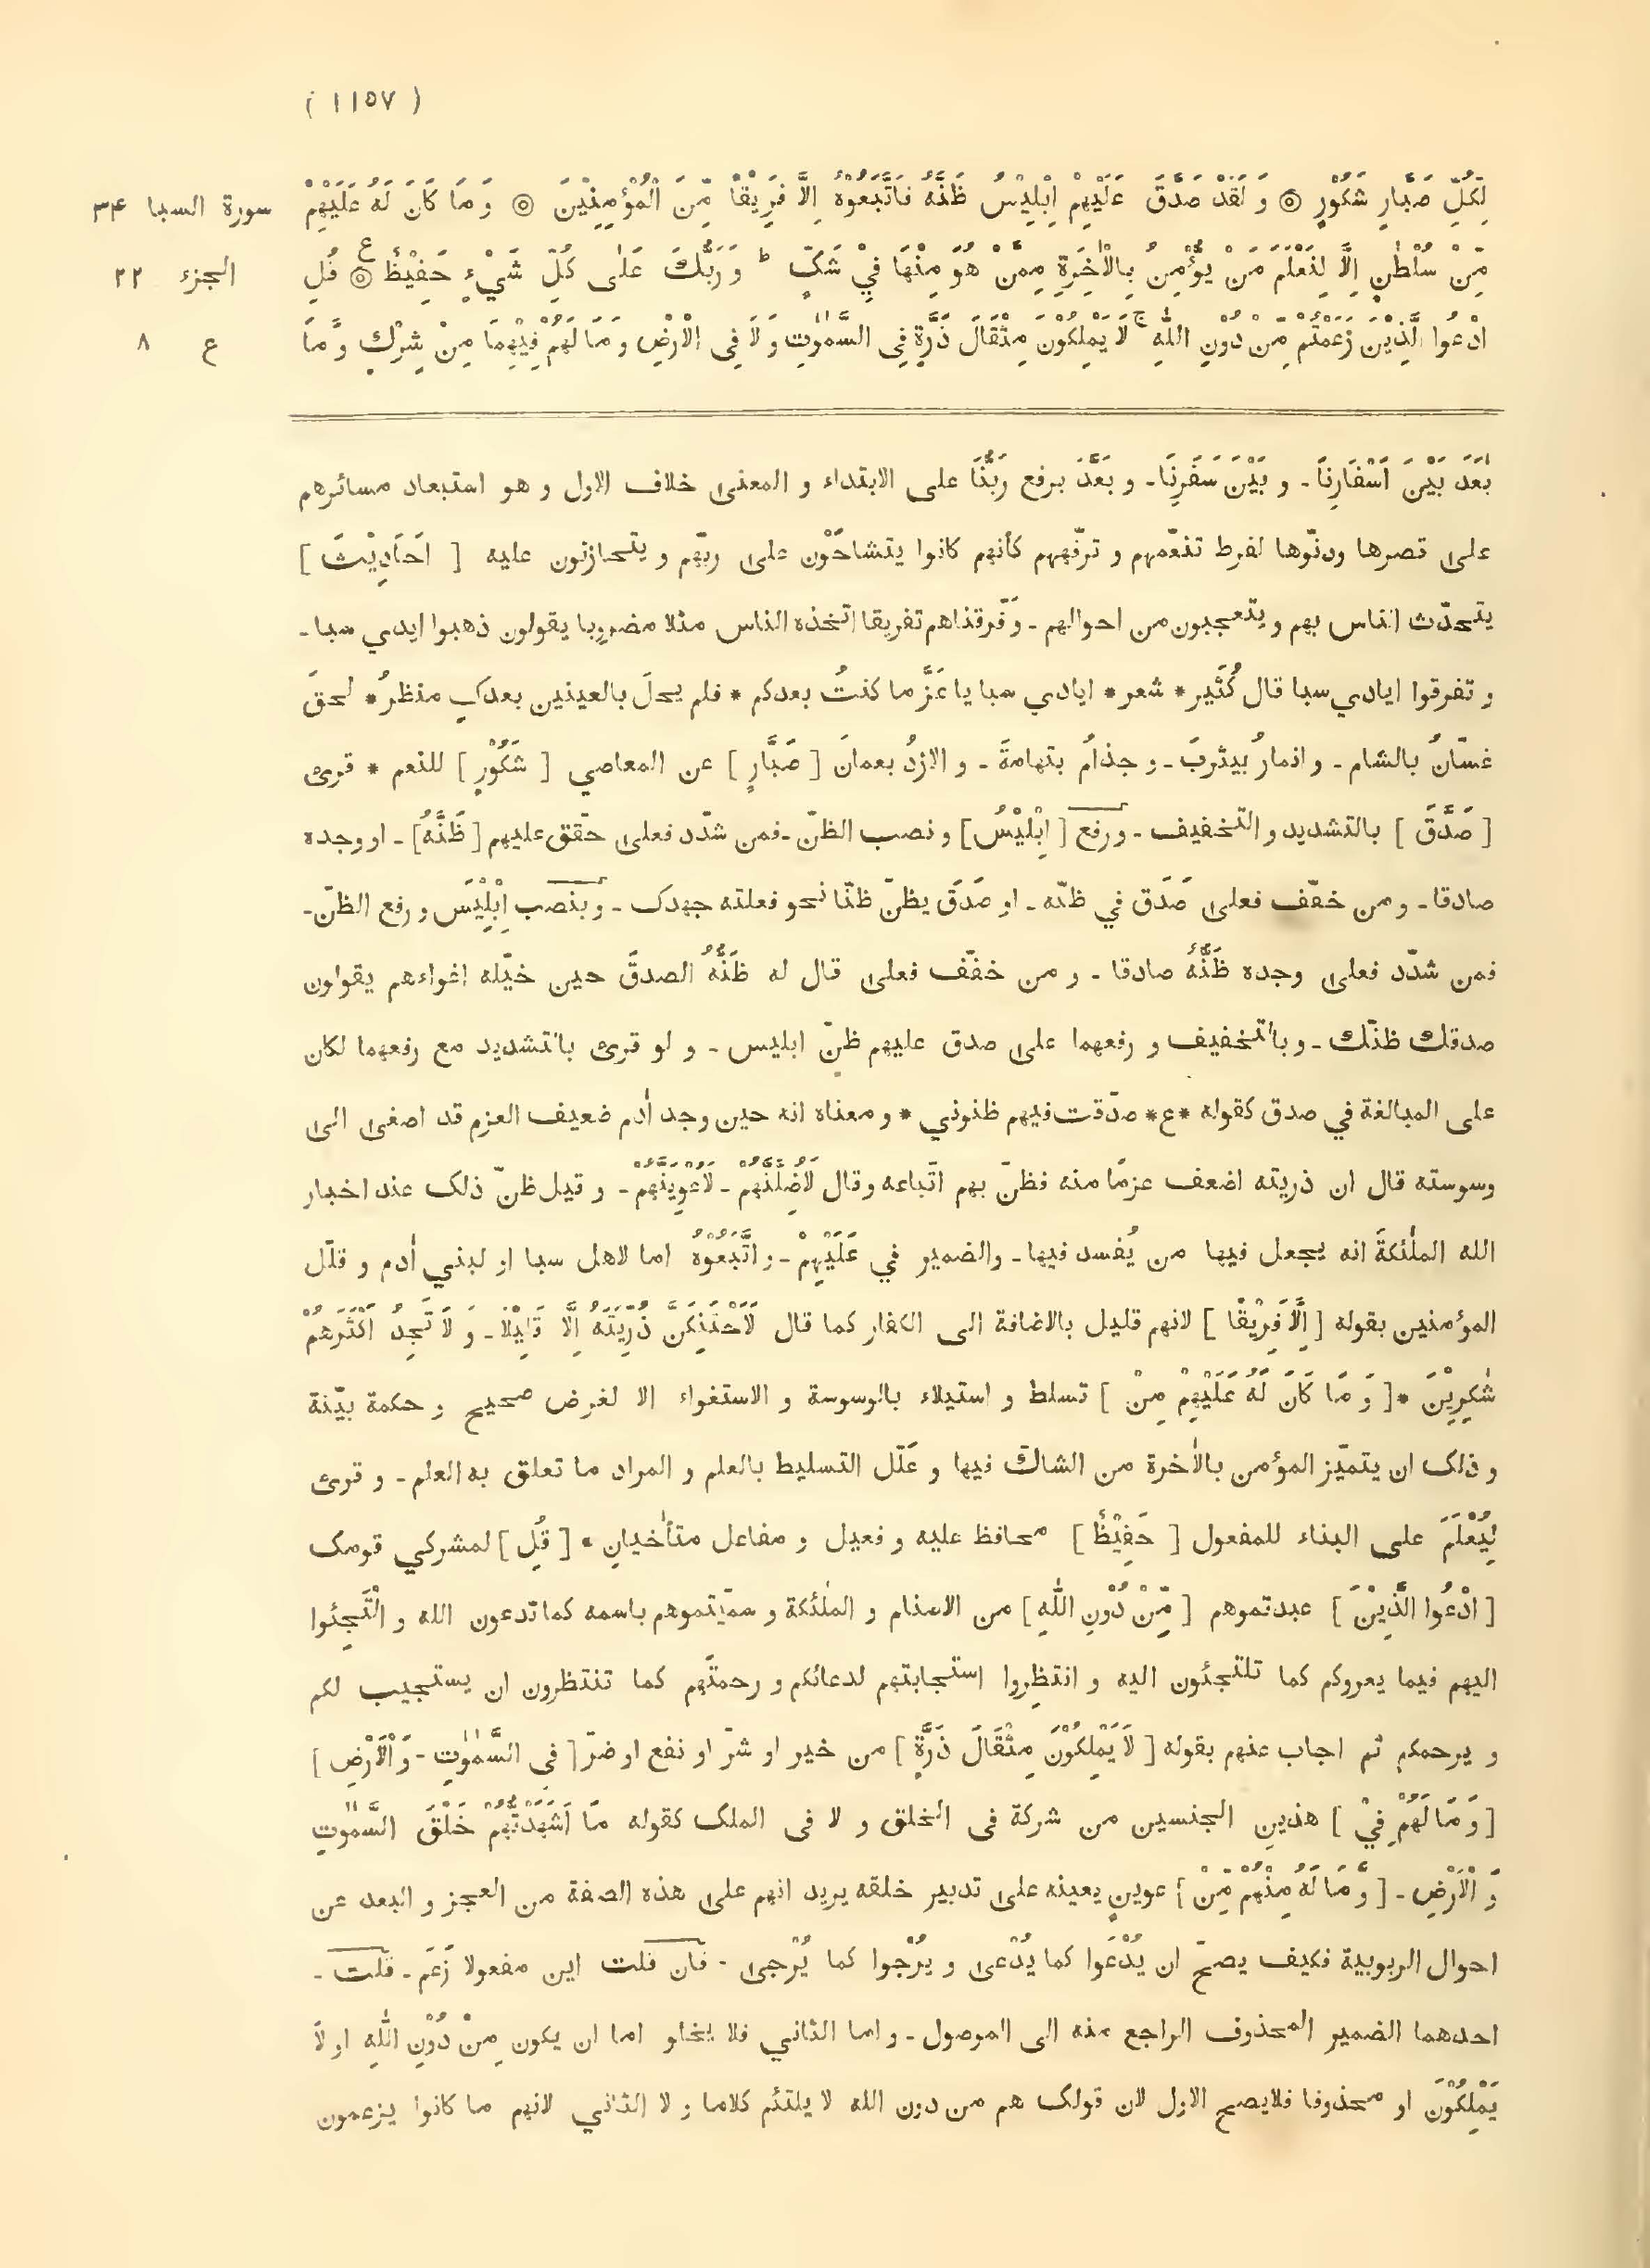 ( ١١٥٧ )
لِّكُلِّ صَبَّارٍ شَكُوْرٍ ۞ وَ لَقَدْ صَدَّقَ عَلَيْهِمْ اِبْلِيْسُ ظَنَّهٗ فَاتَّبَعُوْهُ اِلَّا فَرِيْقًا مِّنَ الْمُؤْمِنِيْنَ ۞ وَ مَا كَانَ لَهٗ عَلَيْهِمْ
سورة السبا ٣٤
مِّنْ سُلْطٰنٍ اِلَّا لِنَعْلَمَ مَنْ يُّؤْمِنُ بِالْاٰخِرَةِ مِمَّنْ هُوَ مِنْهَا فِيْ شَكٍّ ط وَ رَبُّكَ عَلٰى كُلِّ شَيْءٍ حَفِيْظٌ ۞ ع قُلِ
الجزء ٢٢
ادْعُوا الَّذِيْنَ زَعَمْتُمْ مِّنْ دُوْنِ اللّٰهِ ج لَا يَمْلِكُوْنَ مِثْقَالَ ذَرَّةٍ فِى السَّمٰوٰتِ وَ لَا فِى الْاَرْضِ وَ مَا لَهُمْ فِيْهِمَا مِنْ شِرْكٍ وَّ مَا
ع ٨
بُعْدَ بَيْنَ اَسْفَارِنَا - و بَيْنَ سَفَرِنَا - و بَعَّدَ برفع رَبُّنَا على الابتداء و المعنى خلاف الاول و هو استبعاد مسائرهم
على قصرها ودنّوها لفرط تنعّمهم و ترفّههم كأنهم كانوا يتشاحّوْن على ربّهم و يتحازنون عليه [ اَحَادِيْثَ ]
يتحدّث الناس بهم و يتعجبون من احوالهم - وَفّرقناهم تفريقا اتخذه الناس مثلا مضروبا يقولون ذهبوا ايدي سبا -
و تفرقوا ايادي سبا قال كُثَير * شعر * ايادي سبا يا عَزَّ ما كنتُ بعدكم * فلم يحلَ بالعينين بعدكِ منظرُ * لحقَ
غسّانُ بالشام - و انمارُ بيثربَ - و جذامُ بتهامةَ - و الازدُ بعمانَ [ صَبَّارٍ ] عن المعاصي [ شَكُوْرٍ ] للنعم * قرئ
[ صَدَّقَ ] بالتشديد و التخفيف - ورفع [ اِبْلِيْسُ ] و نصب الظنّ - فمن شدّد فعلى حقّق عليهم [ ظَنَّهٗ ] - او وجده
صادقا - و من خفّف فعلى صَدَق في ظنّه - او صَدَق يظنّ ظنّا نحو فعلته جهدك - و بنصب اِبْلِيْسَ و رفع الظنّ -
فمن شدّد فعلى وجده ظَنُّهٗ صادقا - و من خفّف فعلى قال له ظَنُّهٗ الصدقَ حين خيّله اغواءهم يقولون
صدقك ظنّك - و بالتخفيف و رفعهما على صدق عليهم ظنّ ابليس - و لو قرئ بالتشديد مع رفعهما لكان
على المبالغة في صدق كقوله * ع * صدّقت فيهم ظنوني * و معناه انه حين وجد اٰدم ضعيف العزم قد اصغى الى
وسوسته قال ان ذريته اضعف عزمًا منه فظنّ بهم اتّباعه وقال لَاُضِلَّنَّهُمْ - لَاُغْوِيَنَّهُمْ - و قيل ظنّ ذلك عند اخبار
الله الملٰئكةَ انه يجعل فيها من يُفسد فيها - والضمير في عَلَيْهِمْ - و اتَّبَعُوْهُ اما لاهل سبا او لبني اٰدم و قلّل
المؤمنين بقوله [ اِلَّا فَرِيْقًا ] لانهم قليل بالاضافة الى الكفار كما قال لَاَحْتَنِكَنَّ ذُرِّيَّتَهٗ اِلَّا قَلِيْلًا - وَ لَا تَجِدُ اَكْثَرَهُمْ
شٰكِرِيْنَ * [ وَ مَا كَانَ لَهٗ عَلَيْهِمْ مِنْ ] تسلط و استيلاء بالوسوسة و الاستغواء الا لغرض صحيح و حكمة بيّنة
و ذلك ان يتميّز المؤمن بالاٰخرة من الشاكّ فيها و علّل التسليط بالعلم و المراد ما تعلق به العلم - و قرئ
لِيُعْلَمَ على البناء للمفعول [ حَفِيْظٌ ] محافظ عليه و فعيل و مفاعل متأٰخيان * [ قُلِ ] لمشركي قومك
[ ادْعُوا الَّذِيْنَ ] عبدتموهم [ مِّنْ دُوْنِ اللّٰهِ ] من الاصنام و الملٰئكة و سمّيتموهم باسمه كما تدعون الله و الْتَجِئوا
اليهم فيما يعروكم كما تلتجئون اليه و انتظِروا استجابتهم لدعائكم و رحمتَهم كما تنتظرون ان يستجيب لكم
و يرحمكم ثم اجاب عنهم بقوله [ لَا يَمْلِكُوْنَ مِثْقَالَ ذَرَّةٍ ] من خير او شرّ او نفع او ضرّ [ فِى السَّمٰوٰتِ - وَ الْاَرْضِ ]
[ وَ مَا لَهُمْ فِيْ ] هذين الجنسين من شركة فى الخلق و لا فى الملك كقوله مَا اَشْهَدْتُّهُمْ خَلْقَ السَّمٰوٰتِ
وَ الْاَرْضِ - [ وَّ مَا لَهٗ مِنْهُمْ مِّنْ ] عوينٍ يعينه على تدبير خلقه يريد انهم على هذه الصفة من العجز و البعد عن
احوال الربوبية فكيف يصحّ ان يُدْعَوا كما يُدْعى و يُرْجوا كما يُرْجى - فان قلت اين مفعولا زَعَمَ - قلت -
احدهما الضمير المحذوف الراجع منه الى الموصول - و اما الثاني فلا يخلو اما ان يكون مِنْ دُوْنِ اللّٰهِ او لَا
يَمْلِكُوْنَ او محذوفا فلا يصح الاول لان قولك هم من دون الله لا يلتئم كلاما و لا الثاني لانهم ما كانوا يزعمون